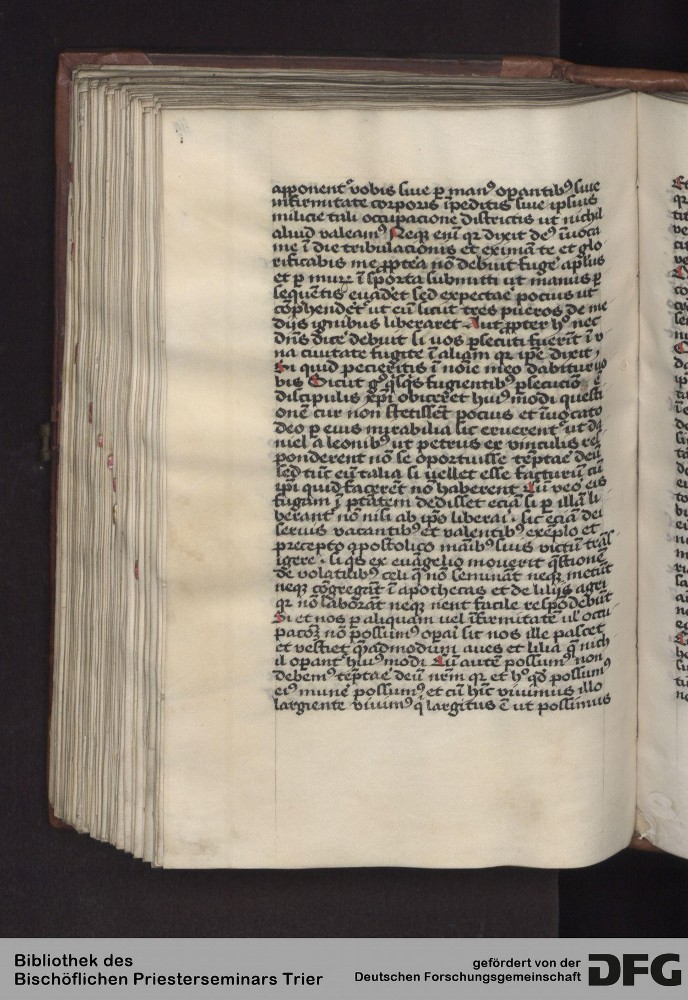 apponent᷑ vobis siue p̱ manꝰ op̱antibꝰ siue
infirmitate corporis īpeditis siue ipsius
milicie tali occupacione districtis ut nichil
aliud valeamꝰ Neqꝫ em̄ qꝛ dixit deꝰ īuoca
me ī die tribulacionis et eximā te et glo
rificabis me ꝓpt̄ea nō debuit fuge᷑ ap̄lus
et p̱ muꝝ ī sporta submitti ut manus p̱
sequēntis euadet sed expectae᷑ pocius ut
cōp̱hendet᷑ ut eū sicut tres pueros de me
dijs ignibus liberaret Aut ꝓpter hͦ nec
dn̄s dice᷑ debuit si uos p̱secuti fuerīt ī v
na ciuitate fugite ī aliam qꝛ ip̄e dixit
Si quid pecieritis ī noīe meo dabitur uo
bis Sicut gͦ qͥsqͥs fugientibꝰ p̱secucionē
discipulis xp̄i obiceret huiꝰmodi questi
onē cur non stetissēt pocius et īuocato
deo p̱ eius mirabilia sic eruerent᷑ ut da
niel a leonibꝰ ut petrus ex vinculis res
ponderent nō se oportuisse tēptae᷑ deū
sed tūc eū talia si uellet esse facturū cū
ip̄i quid facerēt nō haberent Cū ꝟo eis
fugam ī ptātem dedisset eciā si p̱ illā li
berant᷑ nō nisi ab ip̄o liberai᷑ sic eciā dei
seruis vacantibꝰ et valentibꝰ exēplo et
precepto apostolico māibꝰ suis victū trāsi
igere si qͥs ex euāgelio mouerit qͣstionē
de volatilibꝰ celi q̄ nō semināt neqꝫ metūt
neqꝫ cōgregāt ī apothecas et de lilijs agri
qꝛ nō laborāt neqꝫ nent facile respōdebūt
Si et nos p̱ aliquam uel īfirmitatē ul᷑ occu
pacoꝫ nō possumꝰ op̱ai᷑ sic nos ille pascet
et vestiet qͣadmodum aues et lilia q̄ nich
il op̱ant᷑ huiꝰmodi Cū autē possumꝰ non
debemꝰ tēptae᷑ deū nr̄m qꝛ et hͦ qd̄ possumꝰ
eiꝰ mune᷑ possumꝰ et cū hīc viuimus illo
largiente viuimꝰ qͥ largitus ē ut possimus
Bibliothek des
Bischöflichen Priesterseminars Trier
gefördert von der
Deutschen Forschungsgemeinschaft
DFG